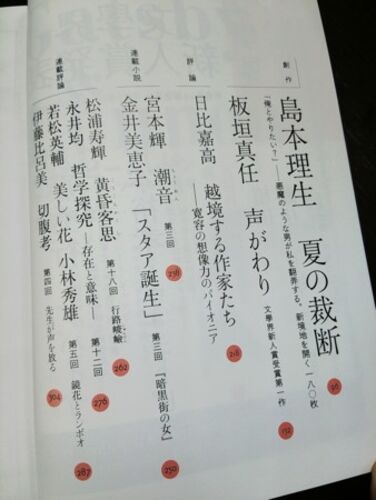 創作
島本理生 夏の裁断
「俺とやりたい?」――悪魔のような男が私を翻弄する。新境地を開く一八〇枚
96
板垣真任 声がわり
文學界新人賞受賞第一作
152
評論
日比嘉高 越境する作家たち
――寛容の想像力のパイオニア
218
連載小説
宮本輝 潮音 第三回
238
金井美恵子 「スタア誕生」 第三回 「暗黒街の女」
250
連載評論
松浦寿輝 黄昏客思 第十八回 行路峻嶮
262
永井均 哲学探究――存在と意味―― 第十二回
276
若松英輔 美しい花 小林秀雄 第五回 鏡花とランボオ
287
伊藤比呂美 切腹考 第四回 先生が声を放る
304